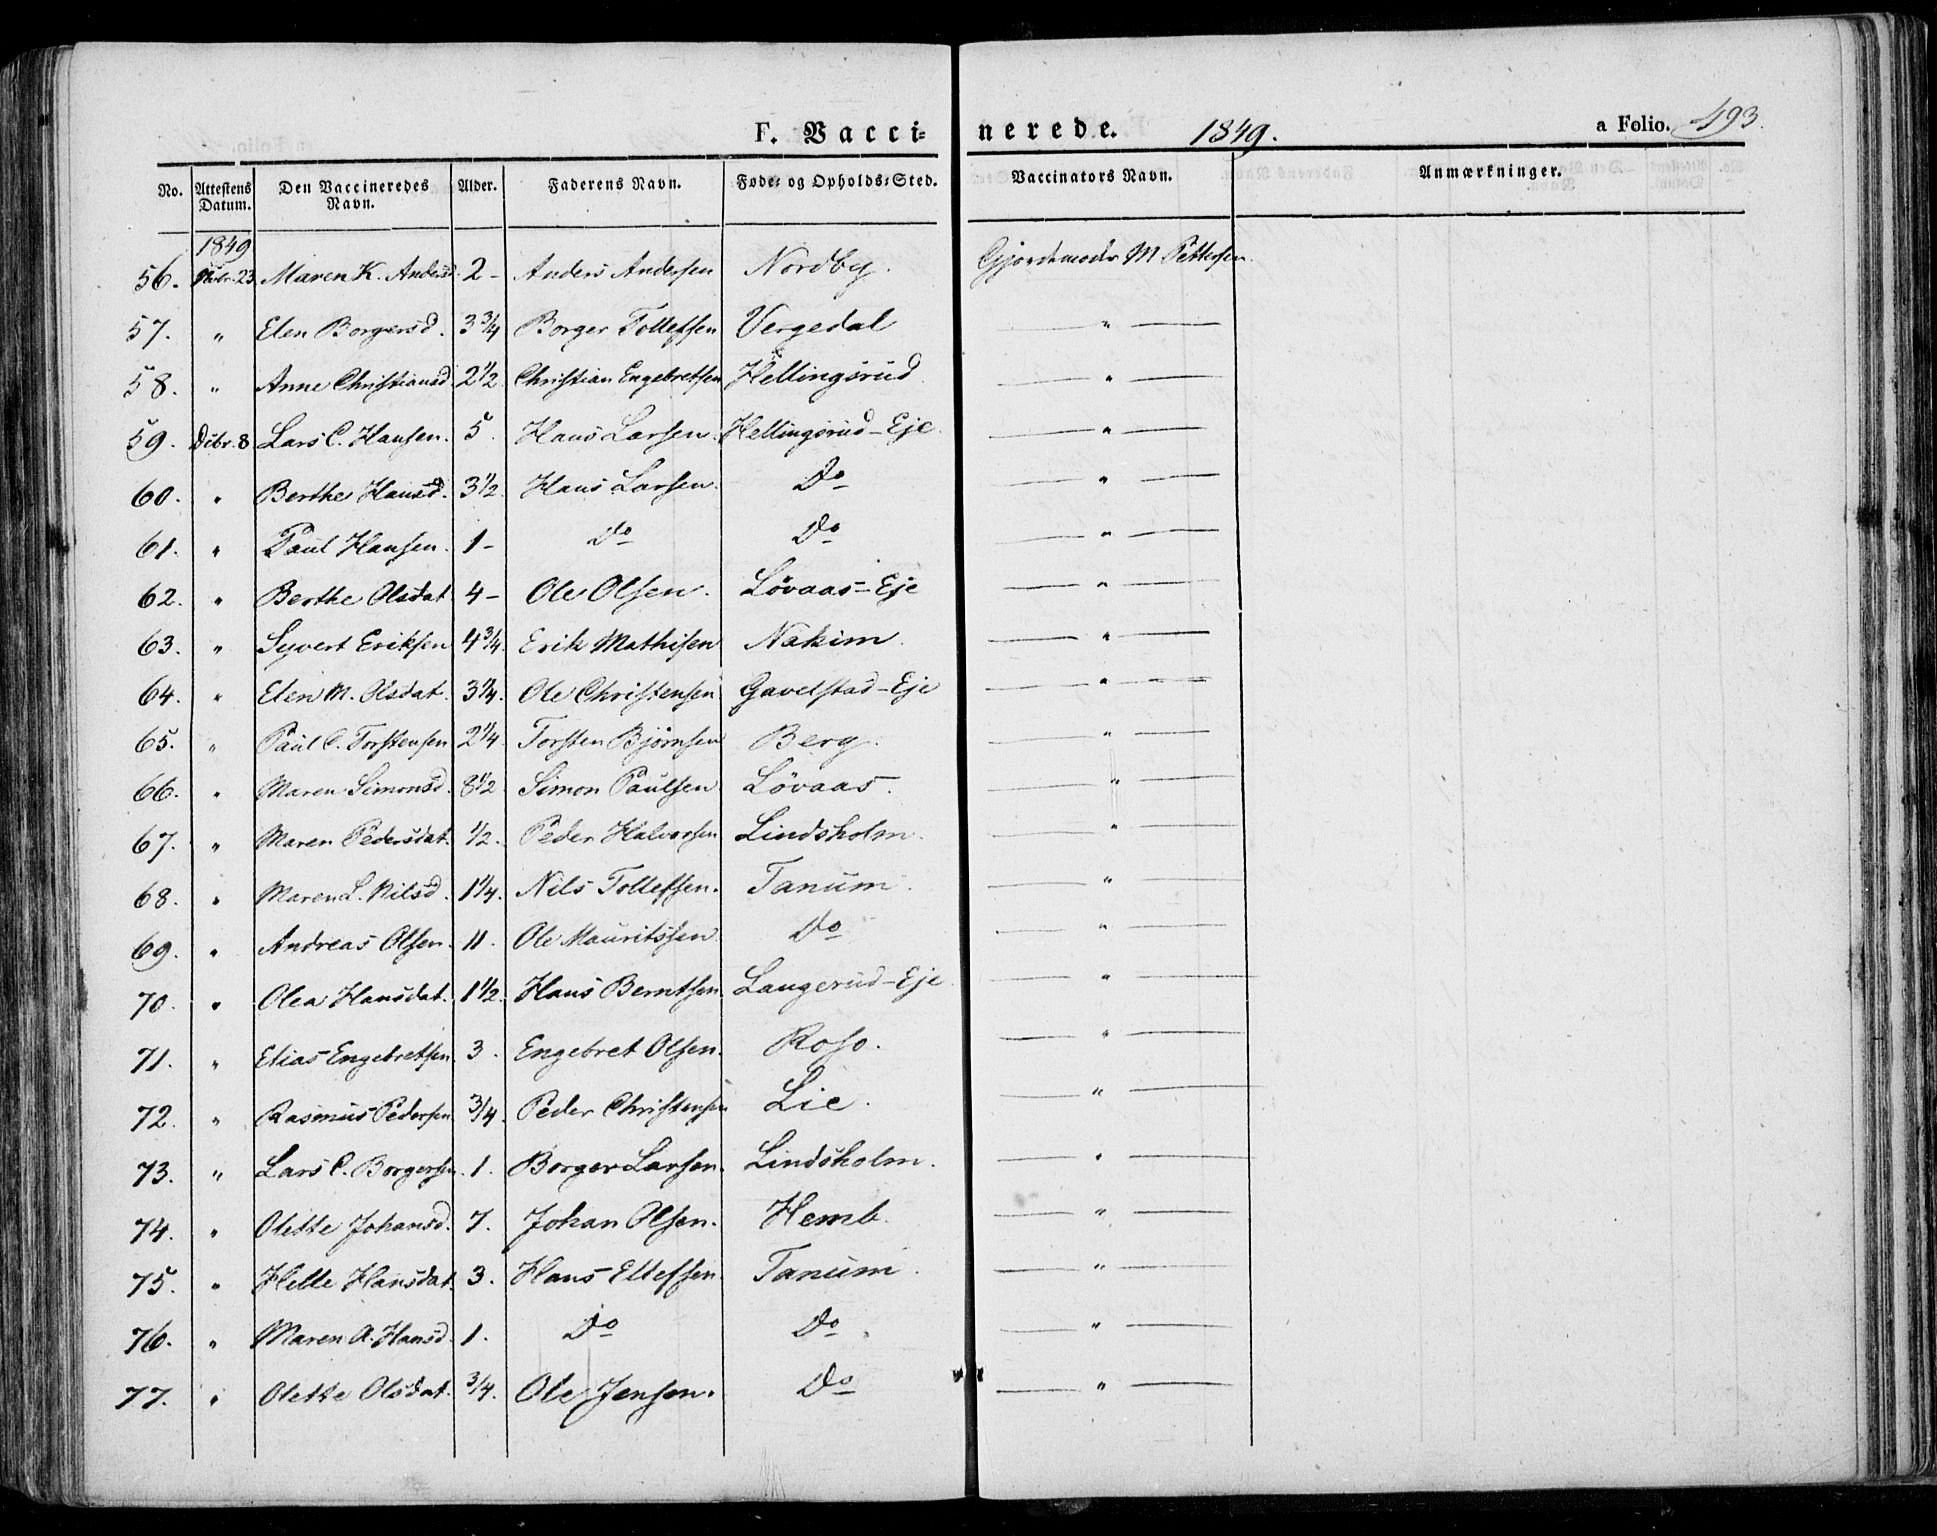 F. Vaccinerede. 1849. a Folio. 493.
No. Attestens Datum. Den Vaccineredes Navn. Alder. Faderens Navn. Føde= og Opholds=Sted. Vaccinators Navn. Anmærkninger.
1849
56. 9br. 23 Maren K. Andersd. 2 - Anders Andersen Nordby. Gjordemoder M Pettersen
57. " Elen Borgersd. 3 3/4 Borger Tollefsen Vergedal — " —
58. " Anne Christiansd. 2 1/2 Christian Engebretsen Hellingsrud — " —
59. Dcbr. 8 Lars C. Hansen. 5. Hans Larsen. Hellingsrud-Eje. — " —
60. " Berthe Hansd. 3 1/2. Hans Larsen. Do — " —
61. " Paul Hansen. 1- Do Do — " —
62. " Berthe Olsdat. 4- Ole Olsen. Løvaas-Eje — " —
63. " Syvert Eriksen 4 3/4. Erik Mathisen Nakim. — " —
64. " Elen M. Olsdat. 3 1/4. Ole Christensen Gavelstad-Eje — " —
65. " Paul C. Torstensen 2 1/4. Torsten Bjørnsen Berg. — " —
66. " Maren Simonsd. 8 1/2 Simon Paulsen Løvaas. — " —
67. " Maren Pedersdat. 1/2. Peder Halvorsen Lindsholm. — " —
68. " Maren L. Nilsd. 1 1/4. Nils Tollefsen. Tanum. — " —
69. " Andreas Olsen. 11. Ole Mauritssen Do — " —
70. " Olea Hansdat. 1 1/2. Hans Berntsen. Langerud-Eje. — " —
71. " Elias Engebretsen. 3. Engebret Olsen. Roso. — " —
72. " Rasmus Pedersen 3/4. Peder Christensen Lie. — " —
73. " Lars C. Borgersen. 1. Borger Larsen. Lindsholm. — " —
74. " Olette Johansd. 7. Johan Olsen. Hemb. — " —
75. " Helle Hansdat. 3. Hans Ellefsen. Tanum. — " —
76. " Maren A. Hansd. 1. Do Do. — " —
77. " Olette Olsdat. 3/4. Ole Jensen. Do — " —